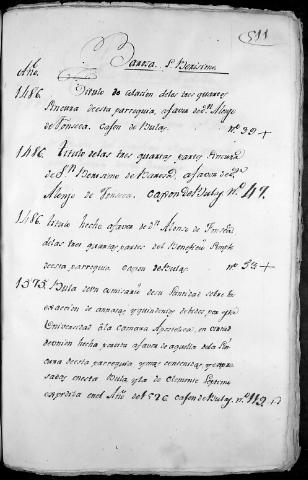 511
Bareza. Sn. Berisimo.
Año.
1486. Titulo de colacion delas tres quartas
sincura de esta parroquia, afavor de dn. Alonso
de Fonseca. cajon de Bulas. no. 39 +
1486. Titulo delas tres quartas partes sincura
de Sn. Berisimo de afavor de dn.
Alonso de Fonseca. Cajon de Bulas no. 47.
1486. titulo hecho afavor de dn. Alonso de Fonseca
delas tres quartas partes del Beneficio simple
de esta parroquia cajon de Bulas. no. 53 +
1575. Bula de un comisario de su Santidad sobre la
exaccion de annatas y quindenios debidos, por esta
Universidad â la camara Apostolica, en virtud
de union hecha afavor de aquella dela sin-
cura de esta parroquia y mas contenidas y expre-
sadas en esta Bula, y la de Clemente Septimo
expedida en el Año de 1526 cajon de Bulas. no. 112. +